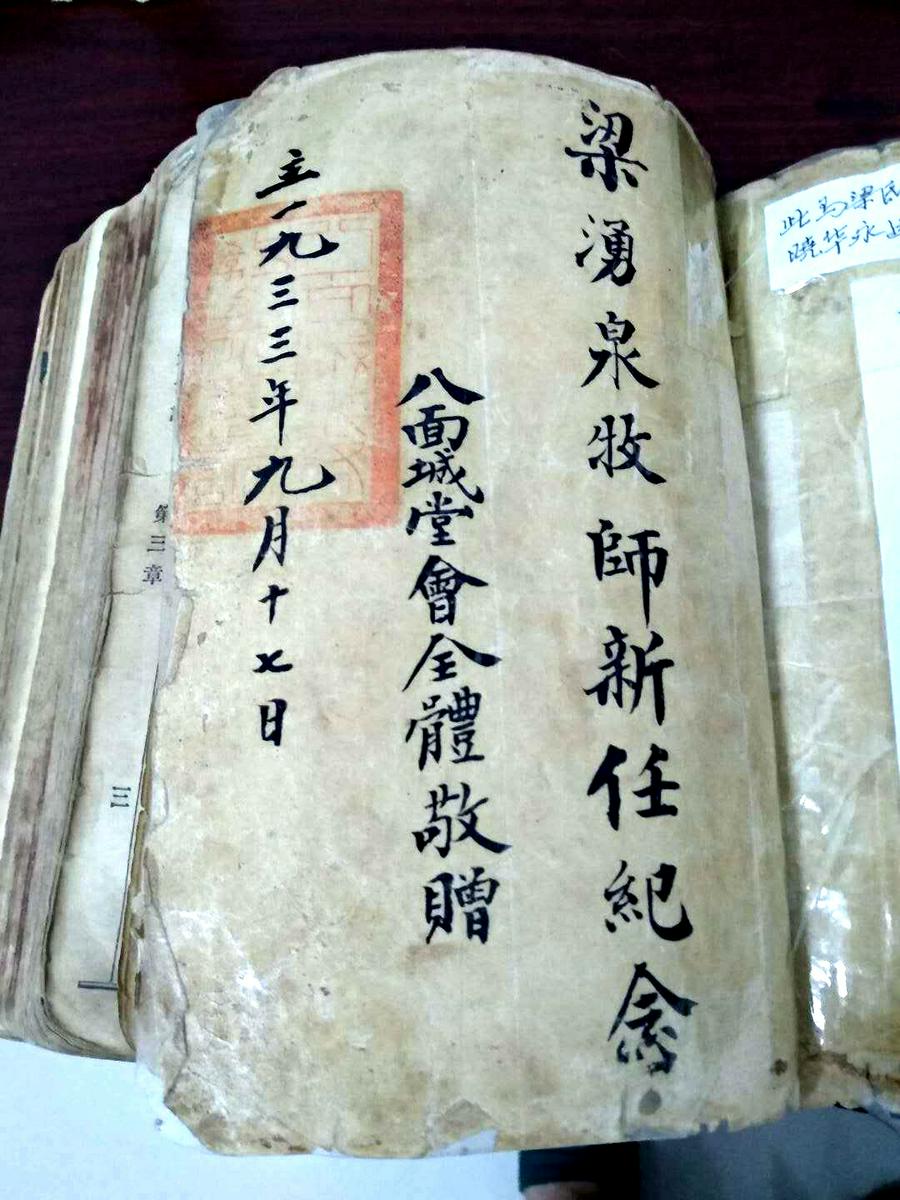 梁湧泉牧師新任紀念
八面城堂會全體敬贈
主一九三三年九月十七日
此为梁氏
晓华永
第三章
三